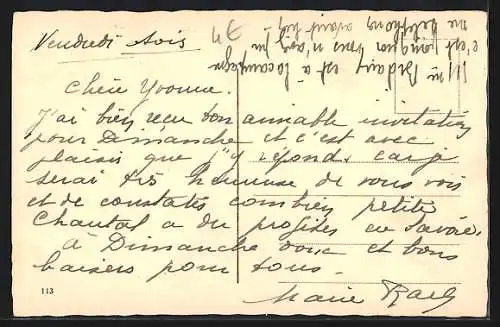 Vendredi soir
Chère Yvonne.
J'ai bien reçu ton aimable invitation
pour Dimanche et c'est avec
plaisir que j'y répond. car je
serai très heureuse de vous voir
et de constater combien petite
Chantal a du profiter en Savoie.
à Dimanche donc et bons
baisers pour tous.
Marie
113
Mme est à la campagne
c'est pourquoi vous n'avez pu
me téléphoner avant hier